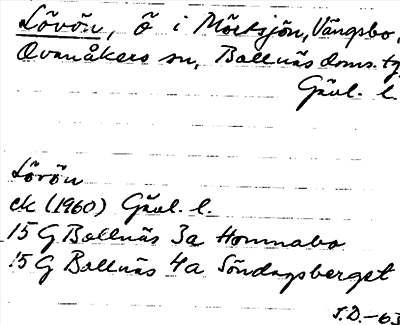 Lövön, ö i Mörtsjön, Vängsbo,
Ovanåkers sn, Bollnäs doms. tg.
Gävl. l.
Lövön
ek (1960) Gävl. l.
15 G Bollnäs 3a Homnabo
15 G Bollnäs 4a Söndagsberget
J.D.-63